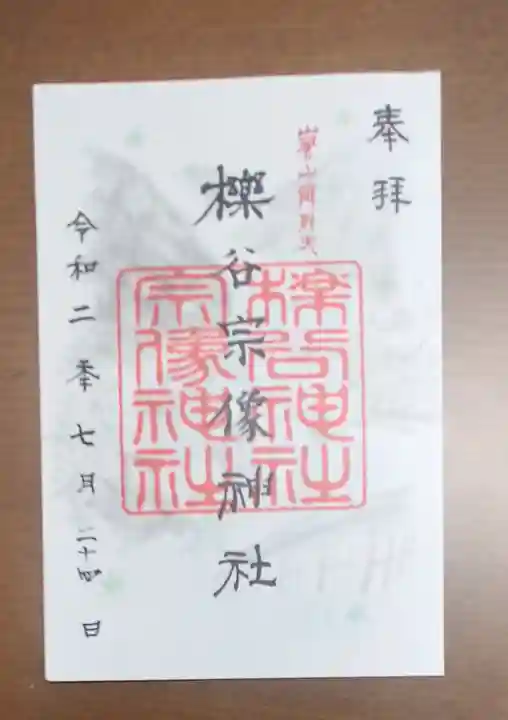 奉拝
嵐山弁財天
櫟谷宗像神社
櫟谷神社
宗像神社
令和二年七月二十四日